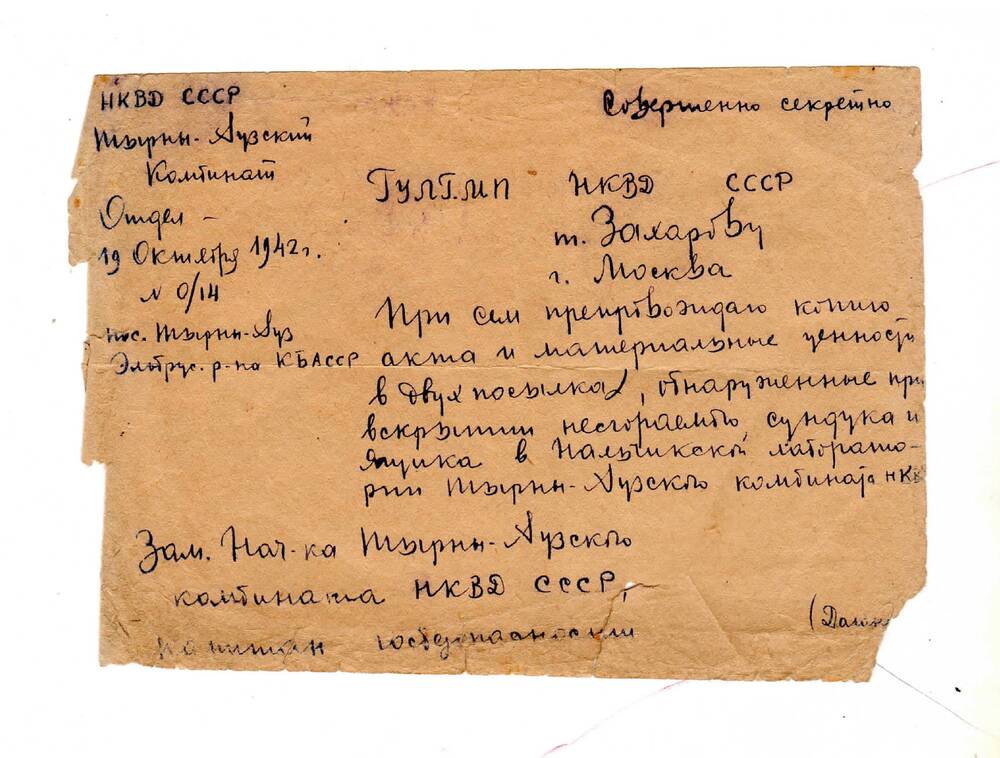 НКВД СССР
Совершенно секретно
Тырны-Аузский
Комбинат
Отдел –
19 Октября 1942 г.
N 0/14
пос. Тырны-Ауз
Эльбрус. р-на КБАССР
ГУЛГМП НКВД СССР
т. Захарову
г. Москва
При сем препровождаю копию
акта и материальные ценности
в двух посылках, обнаруженные при
вскрытии несгораемого сундука и
ящика в Нальчикской лаборато-
рии Тырны-Аузского комбината НКВ
Зам. Нач-ка Тырны-Аузского
комбината НКВД СССР,
капитан госбезопасности